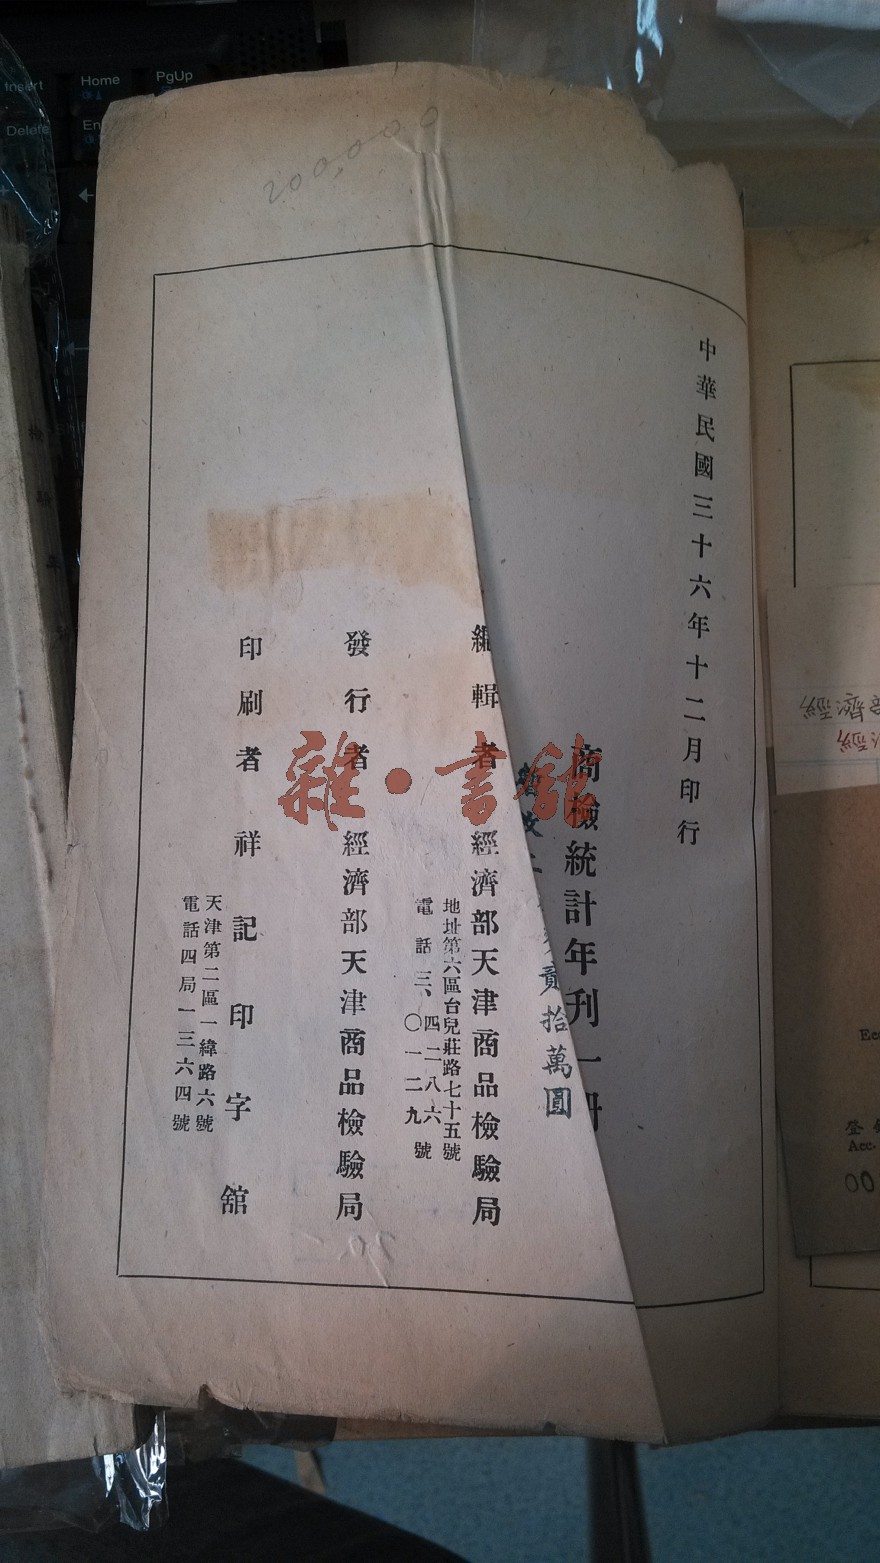 中華民國三十六年十二月印行
商檢統計年刊一册
貳拾萬圓
編輯者 經濟部天津商品檢驗局
地址第六區台兒莊路七十五號
電話三、〇四一二二八九六號
發行者 經濟部天津商品檢驗局
印刷者 祥記印字舘
天津第二區一緯路六號
電話四局一三六四號
200,000
雜·書館
Insert
Home
PgUp
Delete
En
登
Acc.
00